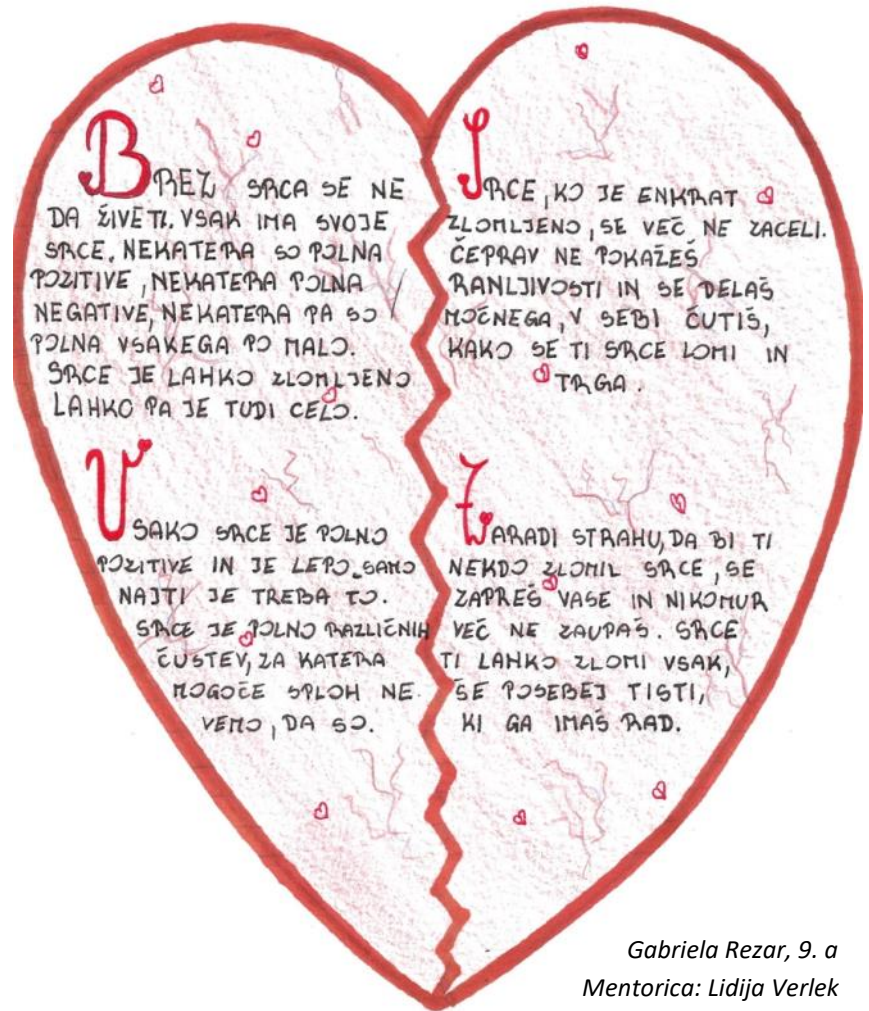 BREZ SRCA SE NE
DA ŽIVETI. VSAK IMA SVOJE
SRCE. NEKATERA SO POLNA
POZITIVE, NEKATERA POLNA
NEGATIVE, NEKATERA PA SO
POLNA VSAKEGA PO MALO.
SRCE JE LAHKO ZLOMLJENO
LAHKO PA JE TUDI CELO.
VSAKO SRCE JE POLNO
POZITIVE IN JE LEPO, SAMO
NAJTI JE TREBA TO.
SRCE JE POLNO RAZLIČNIH
ČUSTEV, ZA KATERA
MOGOČE SPLOH NE
VEMO, DA SO.
SRCE, KO JE ENKRAT
ZLOMLJENO, SE VEČ NE ZACELI.
ČEPRAV NE POKAŽEŠ
RANLJIVOSTI IN SE DELAŠ
MOČNEGA, V SEBI ČUTIŠ,
KAKO SE TI SRCE LOMI IN
TRGA.
ZARADI STRAHU, DA BI TI
NEKDO ZLOMIL SRCE, SE
ZAPREŠ VASE IN NIKOMUR
VEČ NE ZAUPAŠ. SRCE
TI LAHKO ZLOMI VSAK,
ŠE POSEBEJ TISTI,
KI GA IMAŠ RAD.
Gabriela Rezar, 9. a
Mentorica: Lidija Verlek